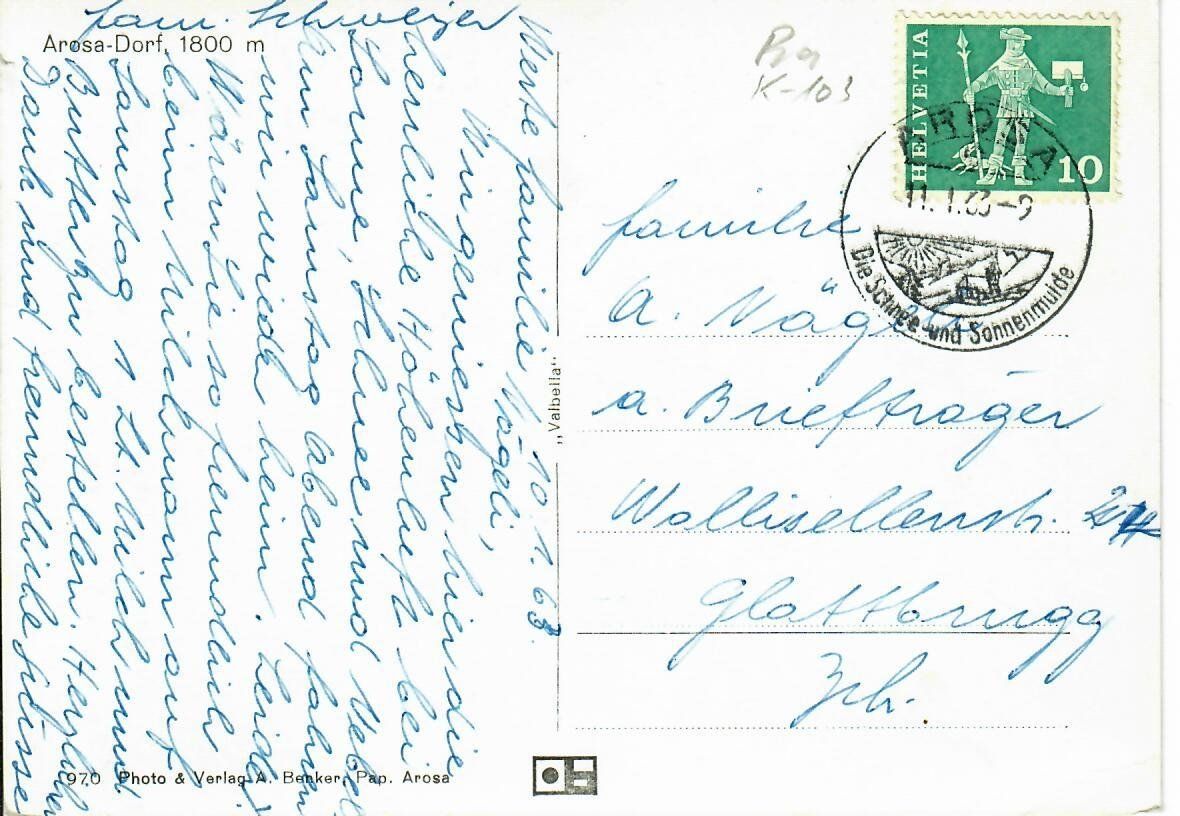 Arosa-Dorf, 1800 m
10. 1. 63.
Werte Familie Nägeli,
Wir geniessen hier die
herrliche Höhenluft bei
Sonne, Schnee und Nebel
Am Samstag Abend fahren
wir wieder heim. Leider
Wären Sie so freundlich
beim Milchmann auf
Samstag 1 Lt. Milch und
Butter zu bestellen. Herzlichen
Dank und freundliche Grüsse
Fam. Schweizer
970 Photo & Verlag A. Benker, Pap. Arosa
„Valbella"
K-103
HELVETIA
10
AROSA
11. 1. 63-9
Die Schnee- und Sonnenmulde
Familie
A. Nägeli
a. Briefträger
Wallisellenstr.
Glattbrugg
Zch.